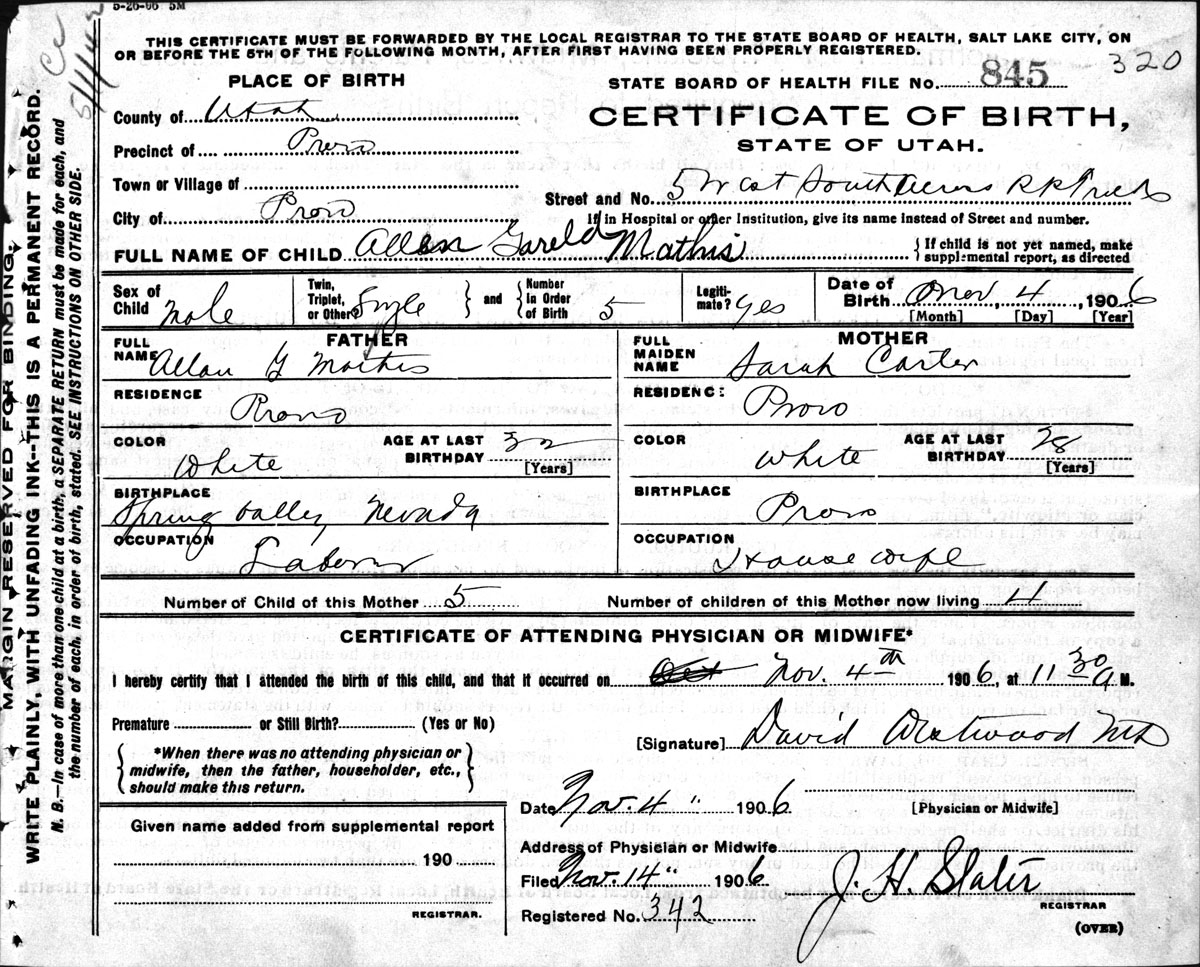 5-26-06 5M
Cc 5/1/42
THIS CERTIFICATE MUST BE FORWARDED BY THE LOCAL REGISTRAR TO THE STATE BOARD OF HEALTH, SALT LAKE CITY, ON
OR BEFORE THE 5TH OF THE FOLLOWING MONTH, AFTER FIRST HAVING BEEN PROPERLY REGISTERED.
320
PLACE OF BIRTH
STATE BOARD OF HEALTH FILE NO. 845
County of Utah
CERTIFICATE OF BIRTH,
STATE OF UTAH.
Precinct of Provo
Town or Village of
Street and No. 5 West South
City of Provo
If in Hospital or other Institution, give its name instead of Street and number.
FULL NAME OF CHILD Allen Gareld Mathis
{ If child is not yet named, make supplemental report, as directed
Sex of Child Male
Twin, Triplet, or Other? Single } and { Number in Order of Birth 5
Legiti-mate? Yes
Date of Birth Nov 4, 1906
[Month] [Day] [Year]
FATHER
MOTHER
FULL NAME Allan G Mathis
FULL MAIDEN NAME Sarah Carter
RESIDENCE Provo
RESIDENCE Provo
COLOR White AGE AT LAST BIRTHDAY 32 [Years]
COLOR White AGE AT LAST BIRTHDAY 28 [Years]
BIRTHPLACE Spring Valley Nevada
BIRTHPLACE Provo
OCCUPATION Laborer
OCCUPATION Housewife
Number of Child of this Mother 5 Number of children of this Mother now living 4
CERTIFICATE OF ATTENDING PHYSICIAN OR MIDWIFE*
I hereby certify that I attended the birth of this child, and that it occurred on Oct Nov. 4th 1906, at 11 30 a M.
Premature or Still Birth? (Yes or No)
[Signature] David Westwood MD
{ *When there was no attending physician or midwife, then the father, householder, etc., should make this return. }
Date Nov. 4 " 1906
[Physician or Midwife]
Given name added from supplemental report
Address of Physician or Midwife
190
Filed Nov. 14 " 1906 J. H. Slater
REGISTRAR.
REGISTRAR
Registered No. 342
(OVER)
MARGIN RESERVED FOR BINDING.
WRITE PLAINLY, WITH UNFADING INK--THIS IS A PERMANENT RECORD.
N. B.—In case of more than one child at a birth, a SEPARATE RETURN must be made for each, and
the number of each, in order of birth, stated. SEE INSTRUCTIONS ON OTHER SIDE.